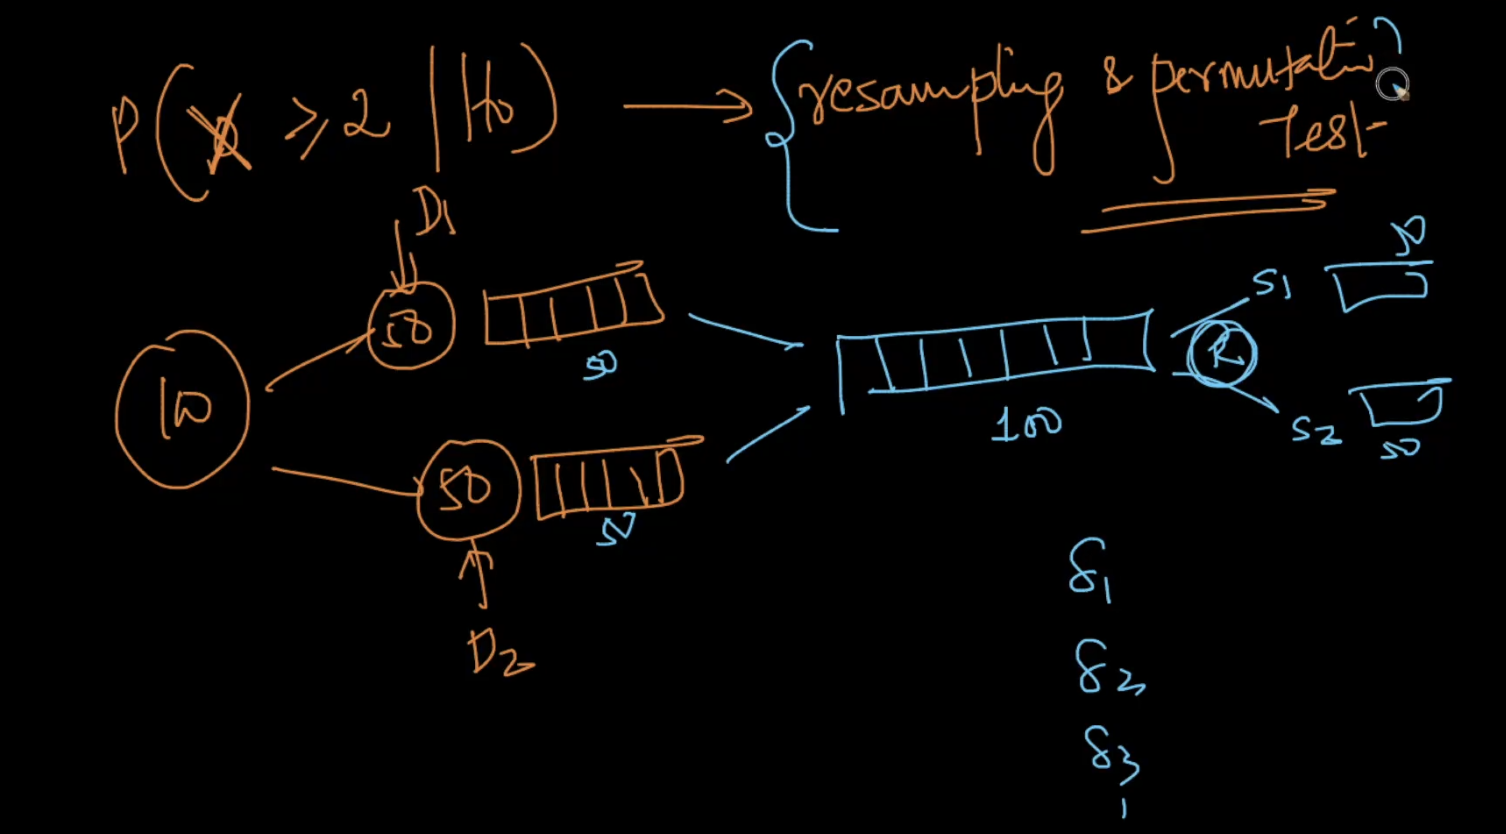 P(X ≥ 2 | H₀) → { resampling & permutation
Test
D₁
50
50
100
50
50
D₂
100
R
S₁
50
S₂
50
δ₁
δ₂
δ₃